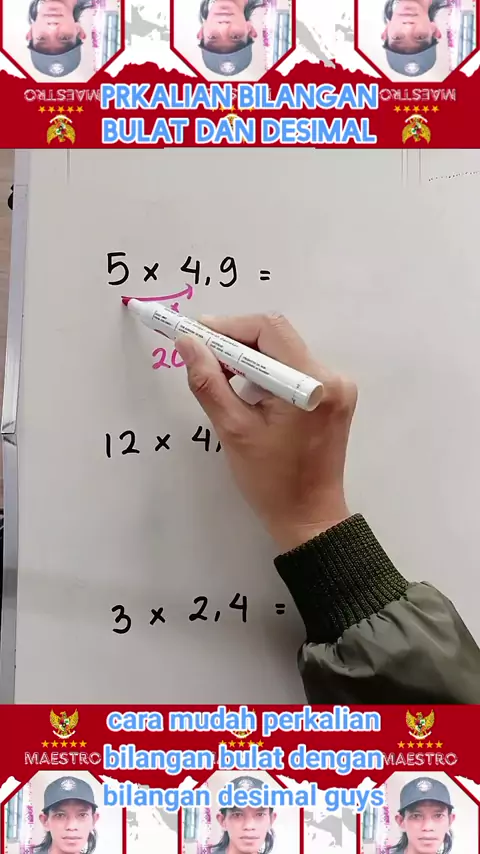 MAESTRO
MAESTRO
PRKALIAN BILANGAN
BULAT DAN DESIMAL
5 × 4,9 =
×
20
12 × 4,
3 × 2,4 =
cara mudah perkalian
MAESTRO
bilangan bulat dengan
MAESTRO
bilangan desimal guys